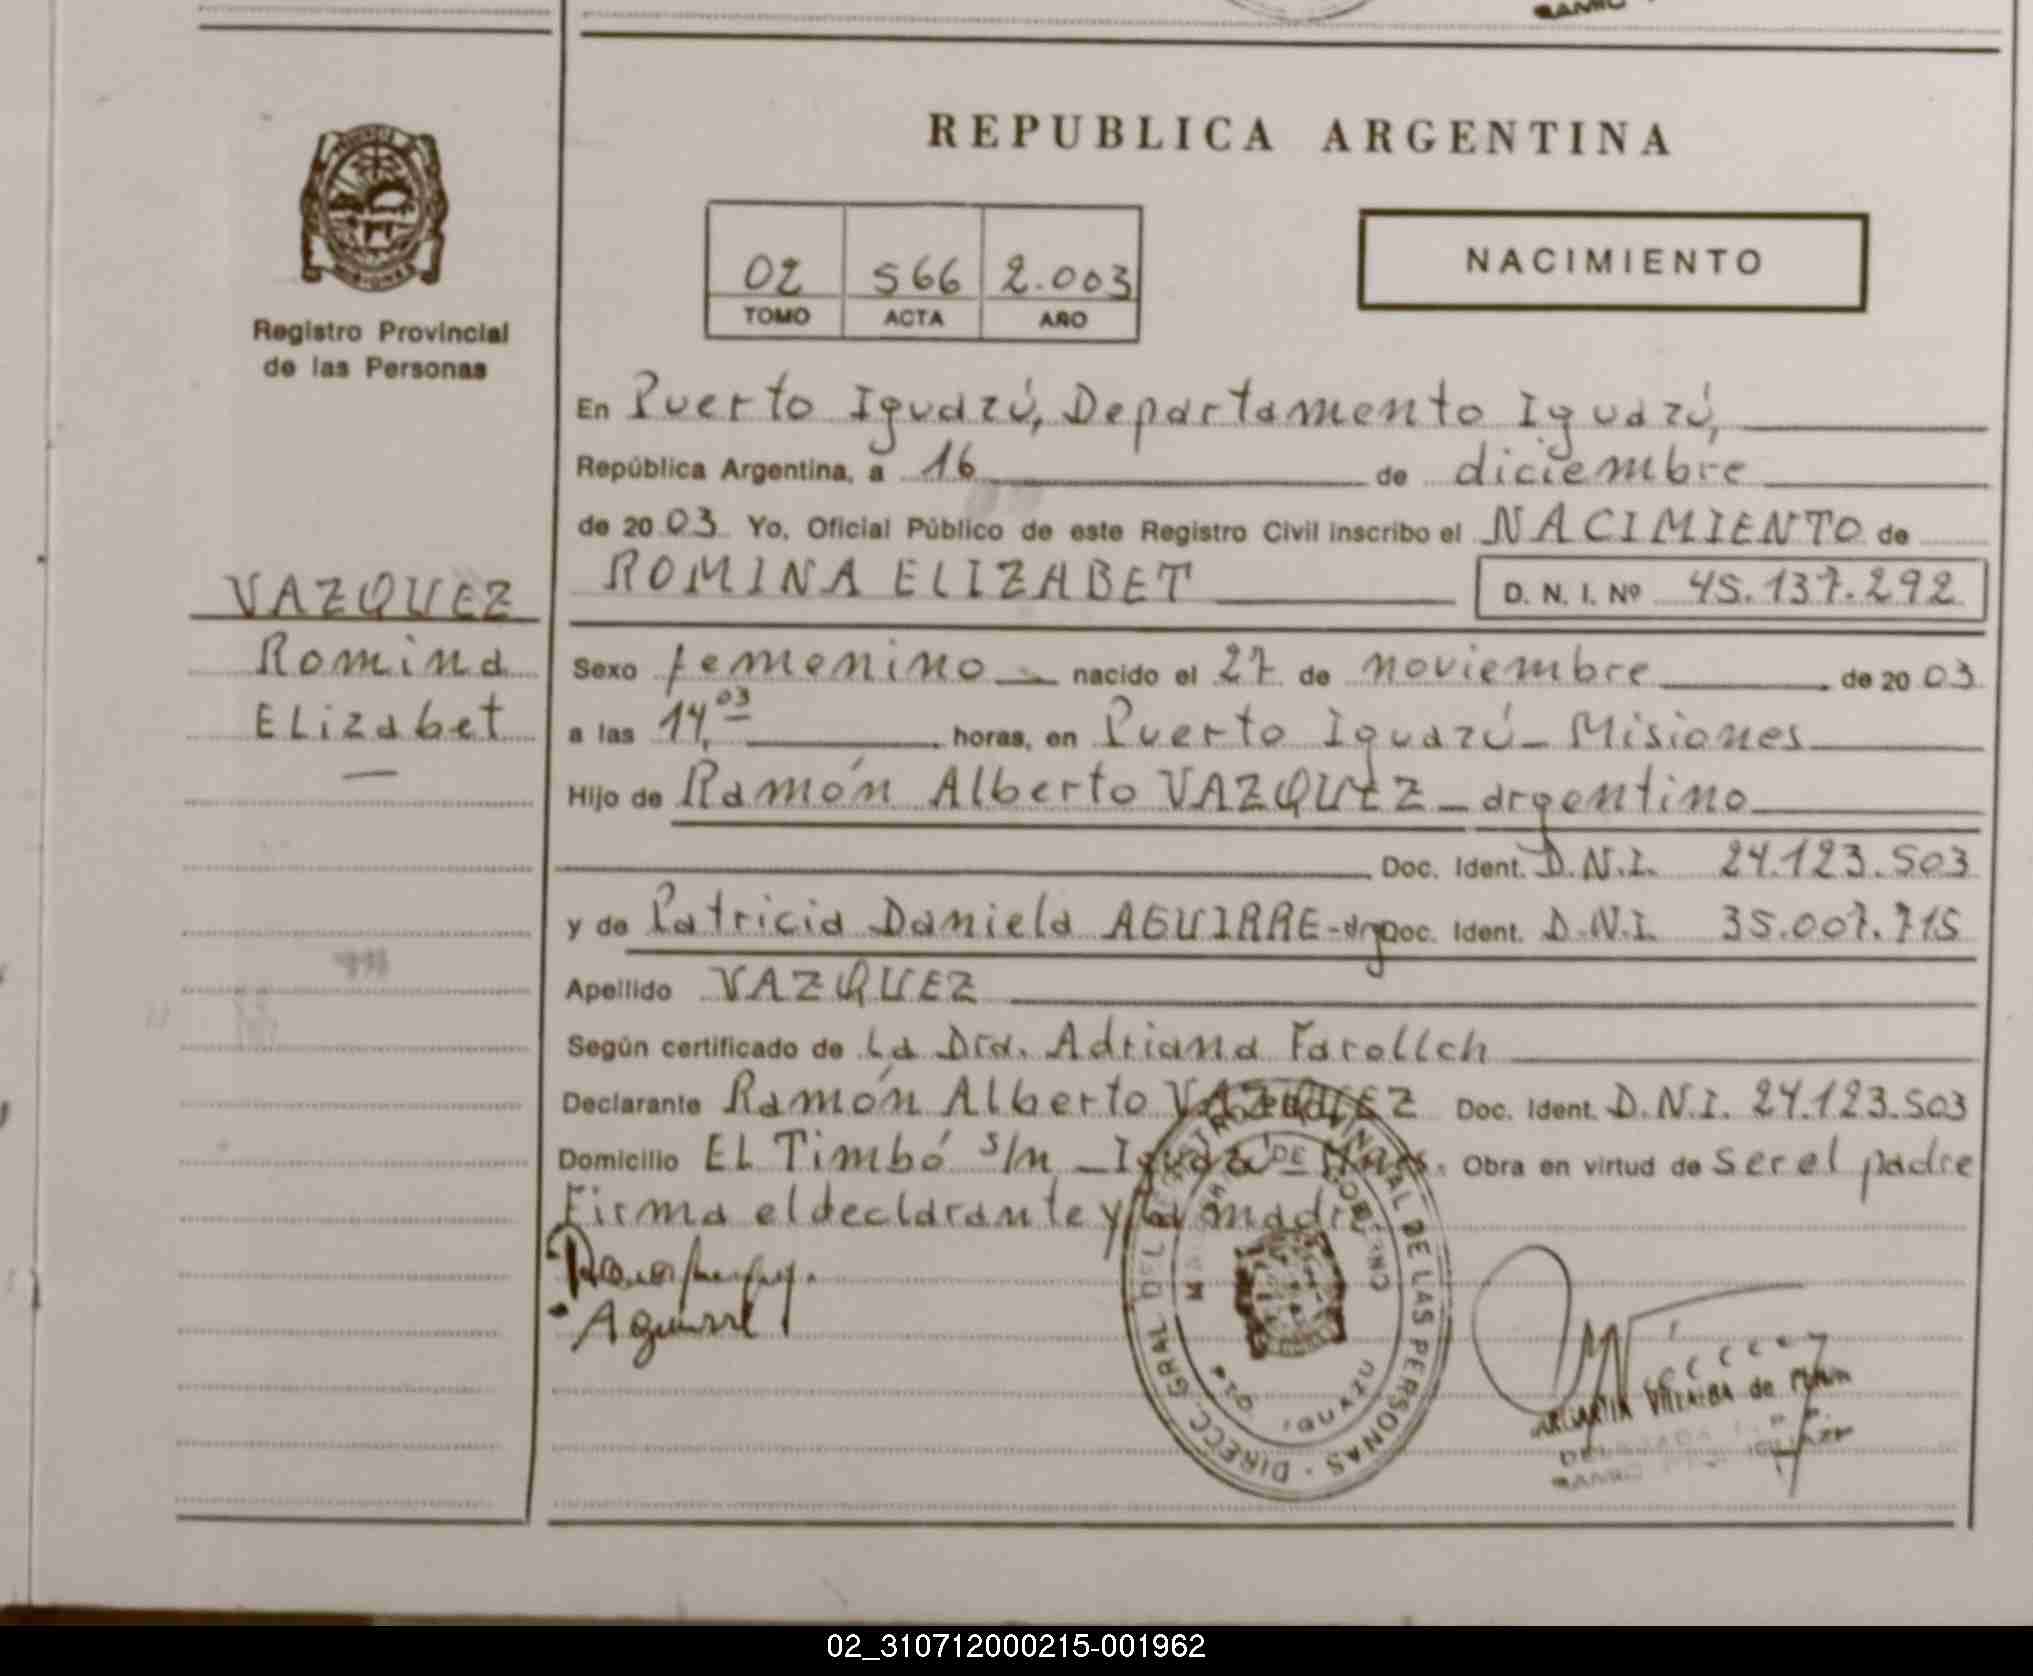 REPUBLICA ARGENTINA
Registro Provincial
de las Personas
02 566 2.003
TOMO ACTA AÑO
NACIMIENTO
En Puerto Iguazú, Departamento Iguazú,
República Argentina, a 16 de diciembre
de 20 03 Yo, Oficial Público de este Registro Civil inscribo el NACIMIENTO de
VAZQUEZ
Romina
Elizabet
ROMINA ELIZABET D. N. I. Nº 45.137.292
Sexo femenino nacido el 27 de noviembre de 20 03
a las 14,03 horas, en Puerto Iguazú - Misiones
Hijo de Ramón Alberto VAZQUEZ - argentino
Doc. Ident. D.N.I. 24.123.503
y de Patricia Daniela AGUIRRE - arg Doc. Ident. D.N.I. 35.007.715
Apellido VAZQUEZ
Según certificado de La Dra. Adriana
Declarante Ramón Alberto VAZQUEZ Doc. Ident. D.N.I. 24.123.503
Domicilio EL Timbó s/n - Iguazú - Mnes. Obra en virtud de ser el padre
Firma el declarante y la madre
Aguirre
DIRECC. GRAL DEL REGISTRO PROVINCIAL DE LAS PERSONAS
IGUAZU
VILLALBA de
02_310712000215-001962